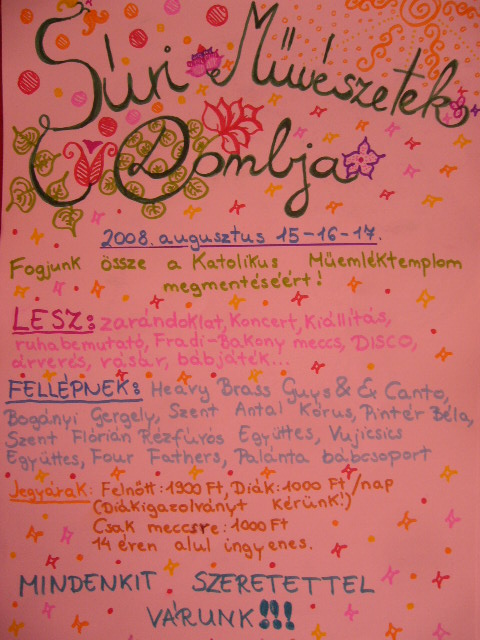 Súri Művészetek
Dombja
2008. augusztus 15-16-17.
Fogjunk össze a Katolikus Műemléktemplom
megmentéséért!
LESZ: zarándoklat, Koncert, Kiállítás,
ruhabemutató, Fradi-Bakony meccs, DISCO,
árverés, vásár, bábjáték...
FELLÉPNEK: Heavy Brass Guys & Ex Canto,
Bogányi Gergely, Szent Antal Kórus, Pintér Béla,
Szent Flórián Rézfúvós Együttes, Vujicsics
Együttes, Four Fathers, Palánta bábcsoport
Jegyárak: Felnőtt: 1900 Ft, Diák: 1000 Ft/nap
(Diákigazolványt kérünk!)
Csak meccsre: 1000 Ft
14 éven alul ingyenes.
MINDENKIT SZERETETTEL
VÁRUNK!!!